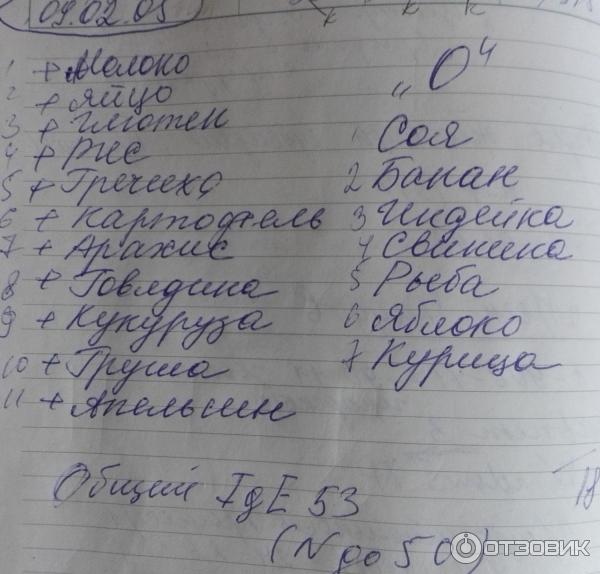 09.02.05
1 + Молоко
2 + яйцо
3 + Глютен
4 + Рис
5 + Гречиха
6 + Картофель
7 + Арахис
8 + Говядина
9 + Кукуруза
10 + Груша
11 + Апельсин
"О"
1 Соя
2 Банан
3 Индейка
4 Свинина
5 Рыба
6 Яблоко
7 Курица
Общий IgE 53
(N до 50)
18
ОТЗОВИК